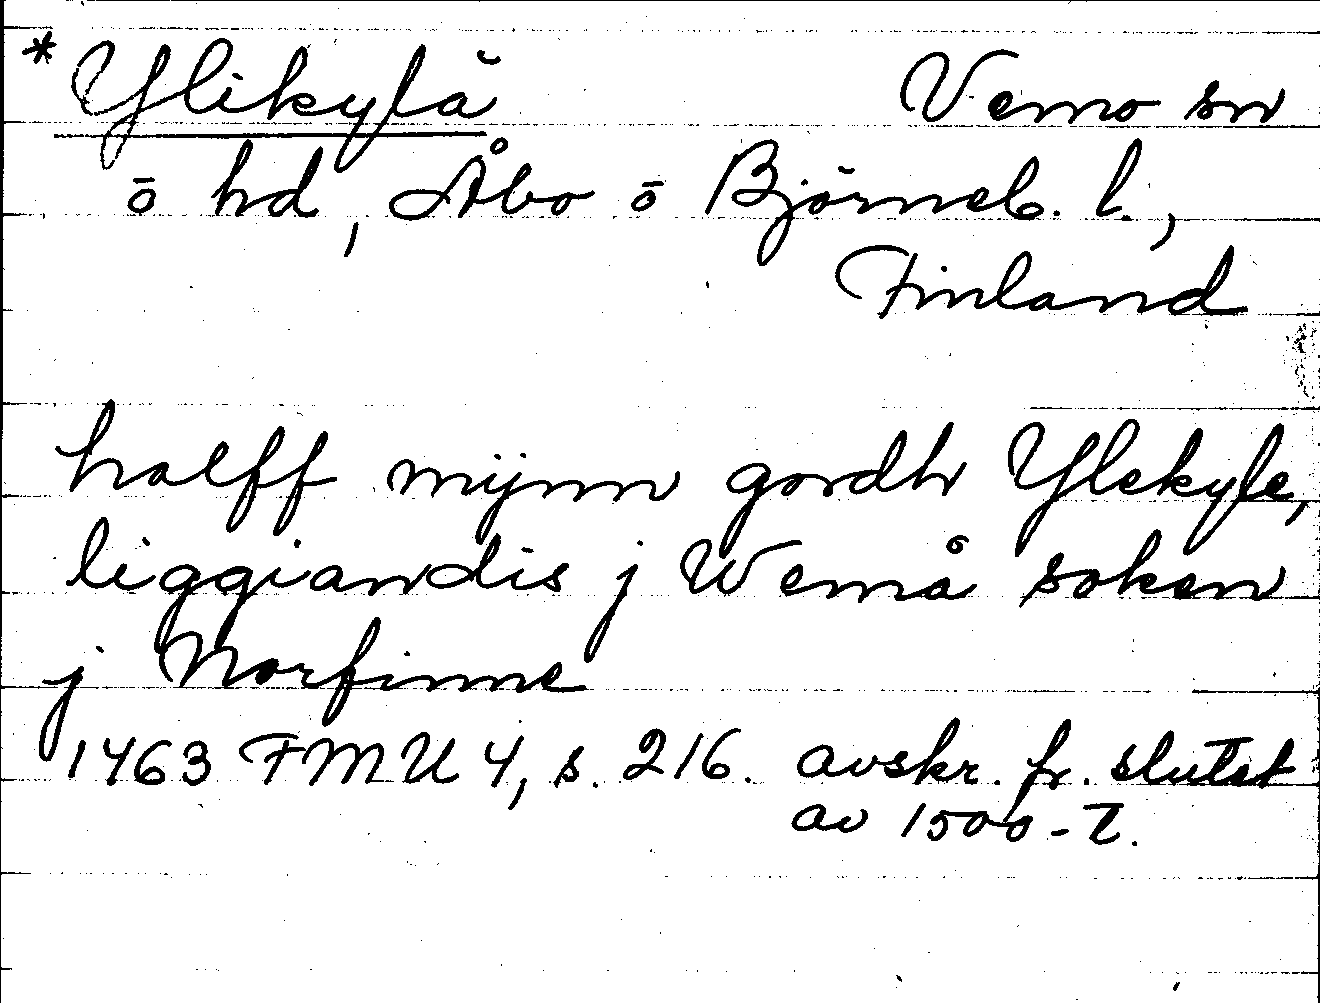 *Ylikylä Vemo sn
o hd, Åbo o Björneb. l.,
Finland
halff mijnn gordh Ylekyle,
liggiandis j Wemå soken
j Norfinne
1463 FMU 4, s. 216. avskr. fr. slutet
av 1500-t.